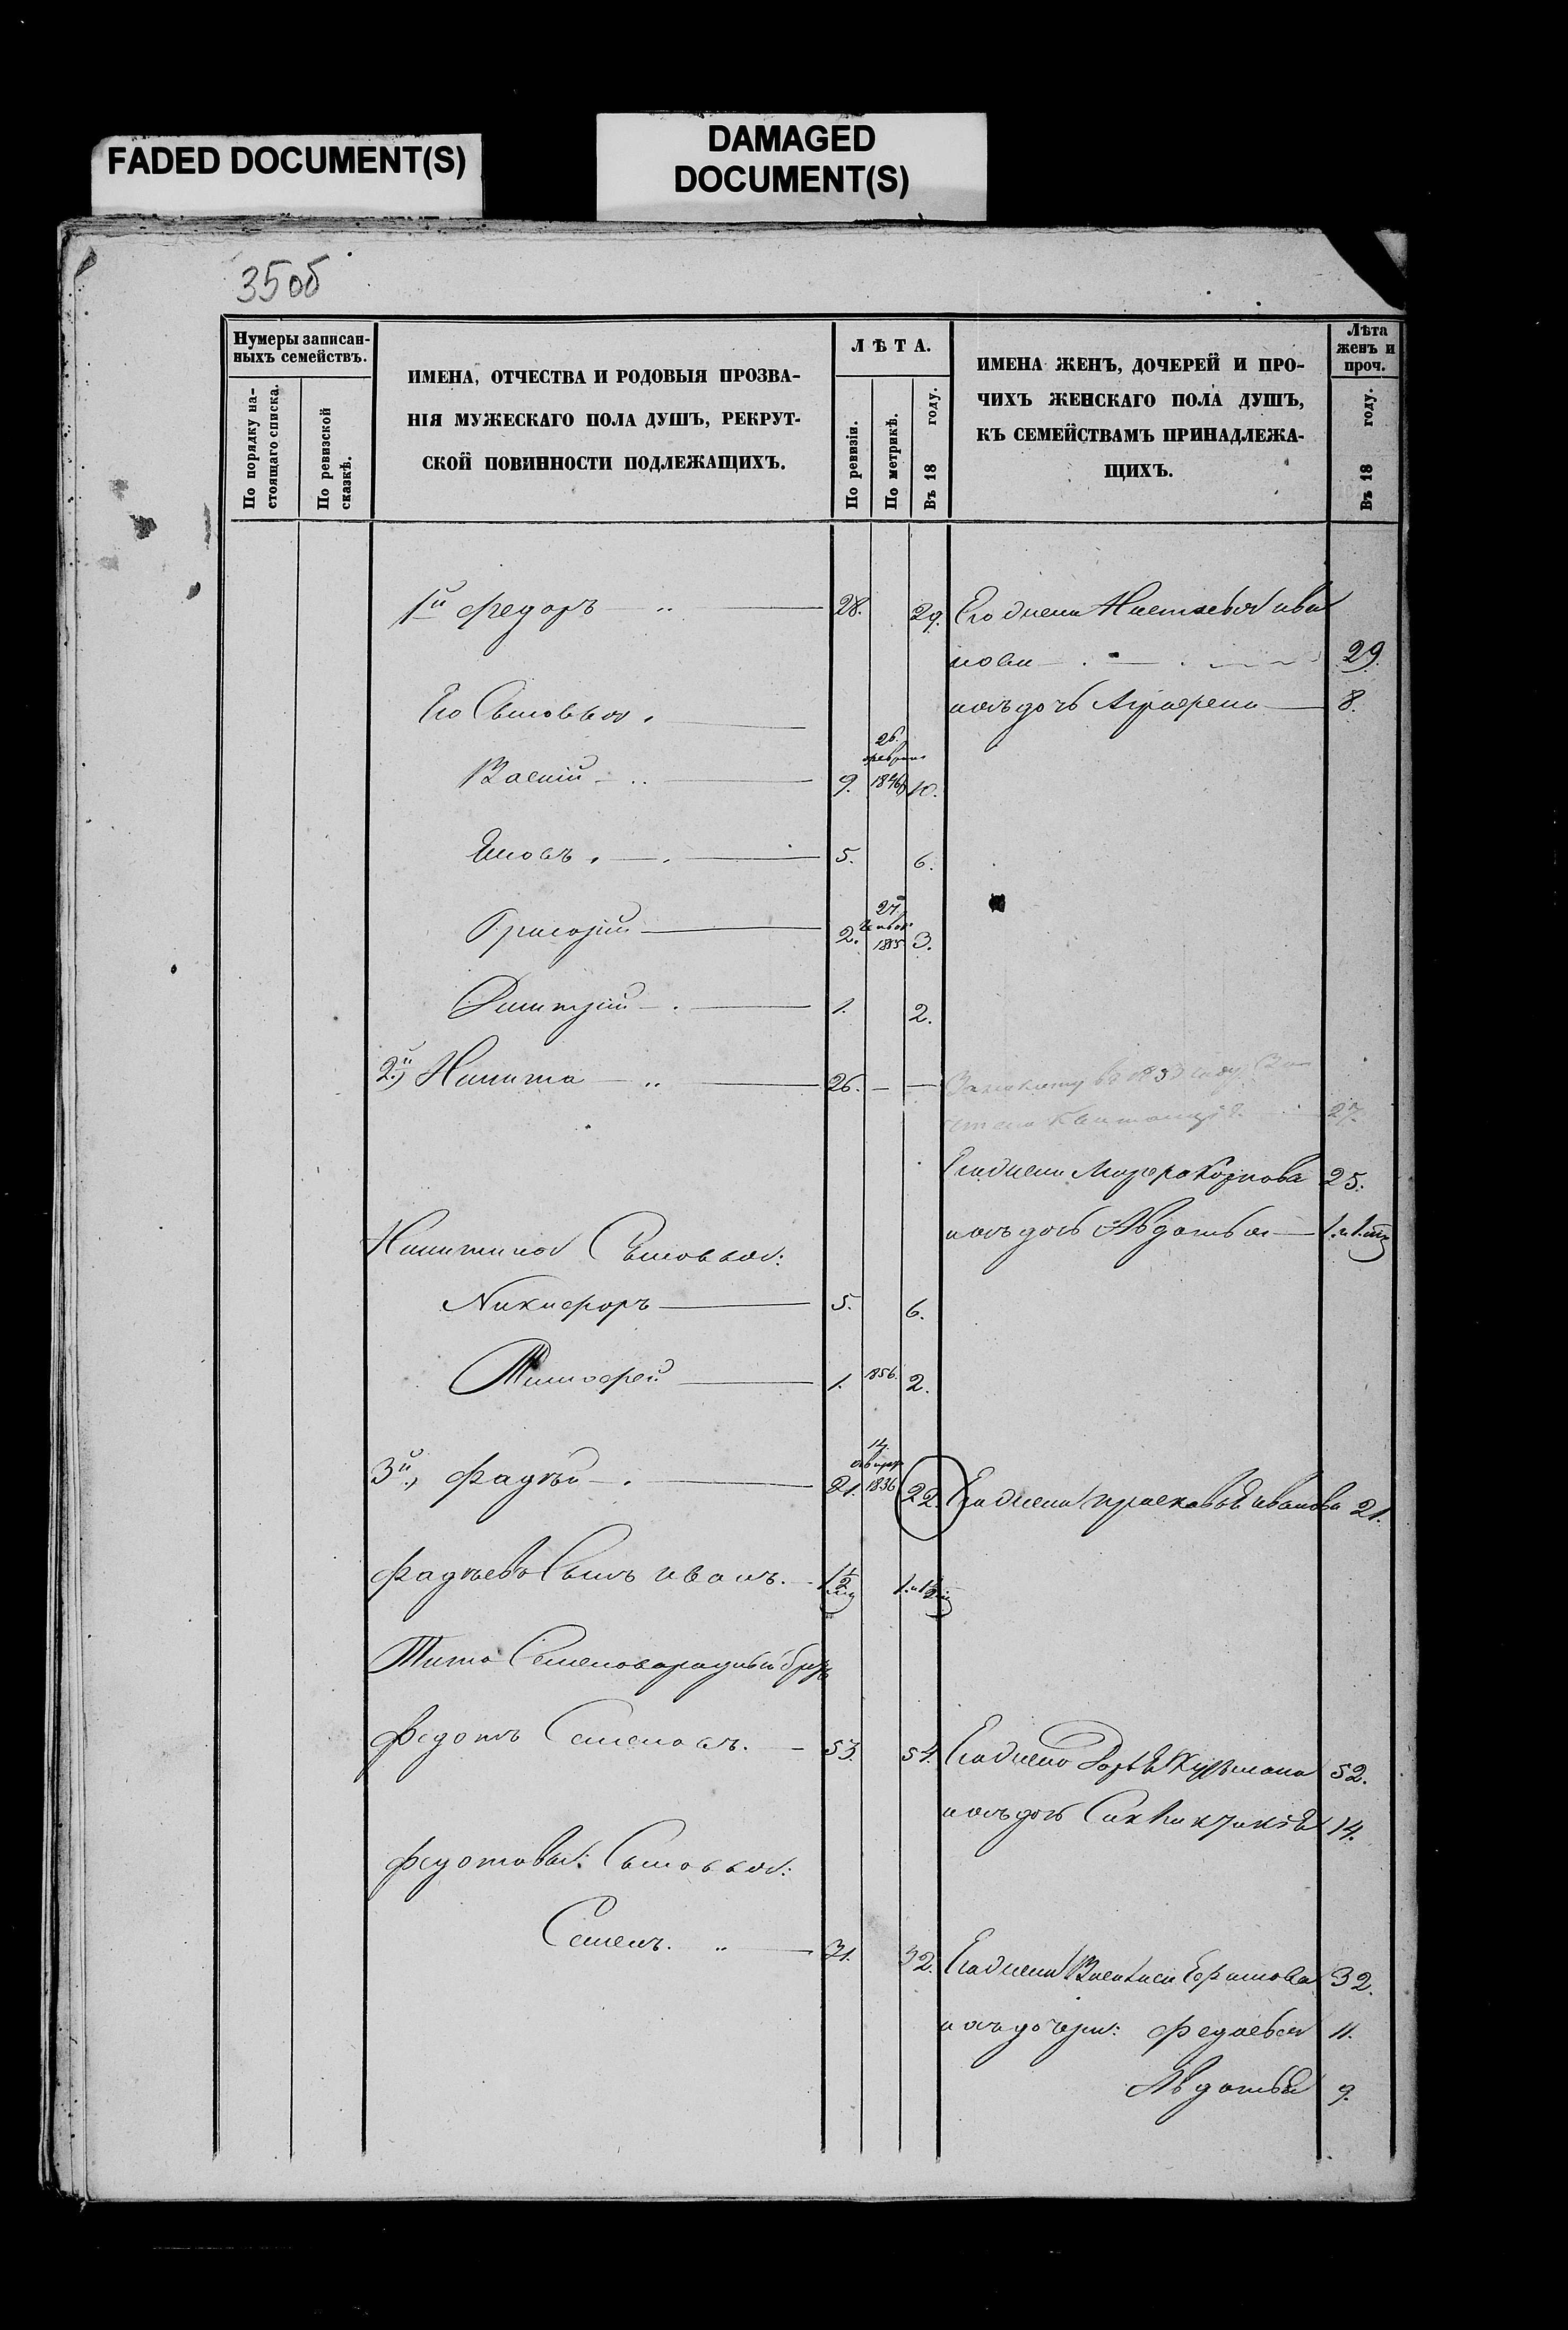 FADED DOCUMENT(S)
DAMAGED
DOCUMENT(S)
35об
Нумеры записан-
ныхъ семействъ.
По порядку на-
стоящаго списка.
По ревизской
сказкѣ.
ИМЕНА, ОТЧЕСТВА И РОДОВЫЯ ПРОЗВА-
НІЯ МУЖЕСКАГО ПОЛА ДУШЪ, РЕКРУТ-
СКОЙ ПОВИННОСТИ ПОДЛЕЖАЩИХЪ.
ЛѢТА.
По ревизіи.
По метрикѣ.
Въ 18 году.
ИМЕНА ЖЕНЪ, ДОЧЕРЕЙ И ПРО-
ЧИХЪ ЖЕНСКАГО ПОЛА ДУШЪ,
КЪ СЕМЕЙСТВАМЪ ПРИНАДЛЕЖА-
ЩИХЪ.
Лѣта
женъ и
проч.
Въ 18 году.
1й Федоръ 28. 29. Его жена Настасья ива
нова 29.
Его Сыновья ихъ дочь Аграфена 8.
26.
февраля
Василій 9. 1846 10.
Яковъ 5. 6.
27
1855
Григорій 2. 3.
Дмитрій 1. 2.
2й, Никита 26. — —
27.
Его жена 25.
ихъ дочь Авдотья
Никитины Сыновья:
Никифоръ 5. 6.
Тимофей 1. 1856. 2.
14.
1836
3й, Фадѣй 21. 22. Его жена прасковья иванова 21.
Фадѣевъ Сынъ иванъ. 1/2
Тита Семенова родный братъ
Федотъ Семеновъ. 53. 54. Его жена 52.
ихъ дочь 14.
Федотовы: Сыновья:
Семенъ. 31. 32. Его жена Василиса Ефимова 32.
ихъ дочери: Федосья 11.
Авдотья 9.